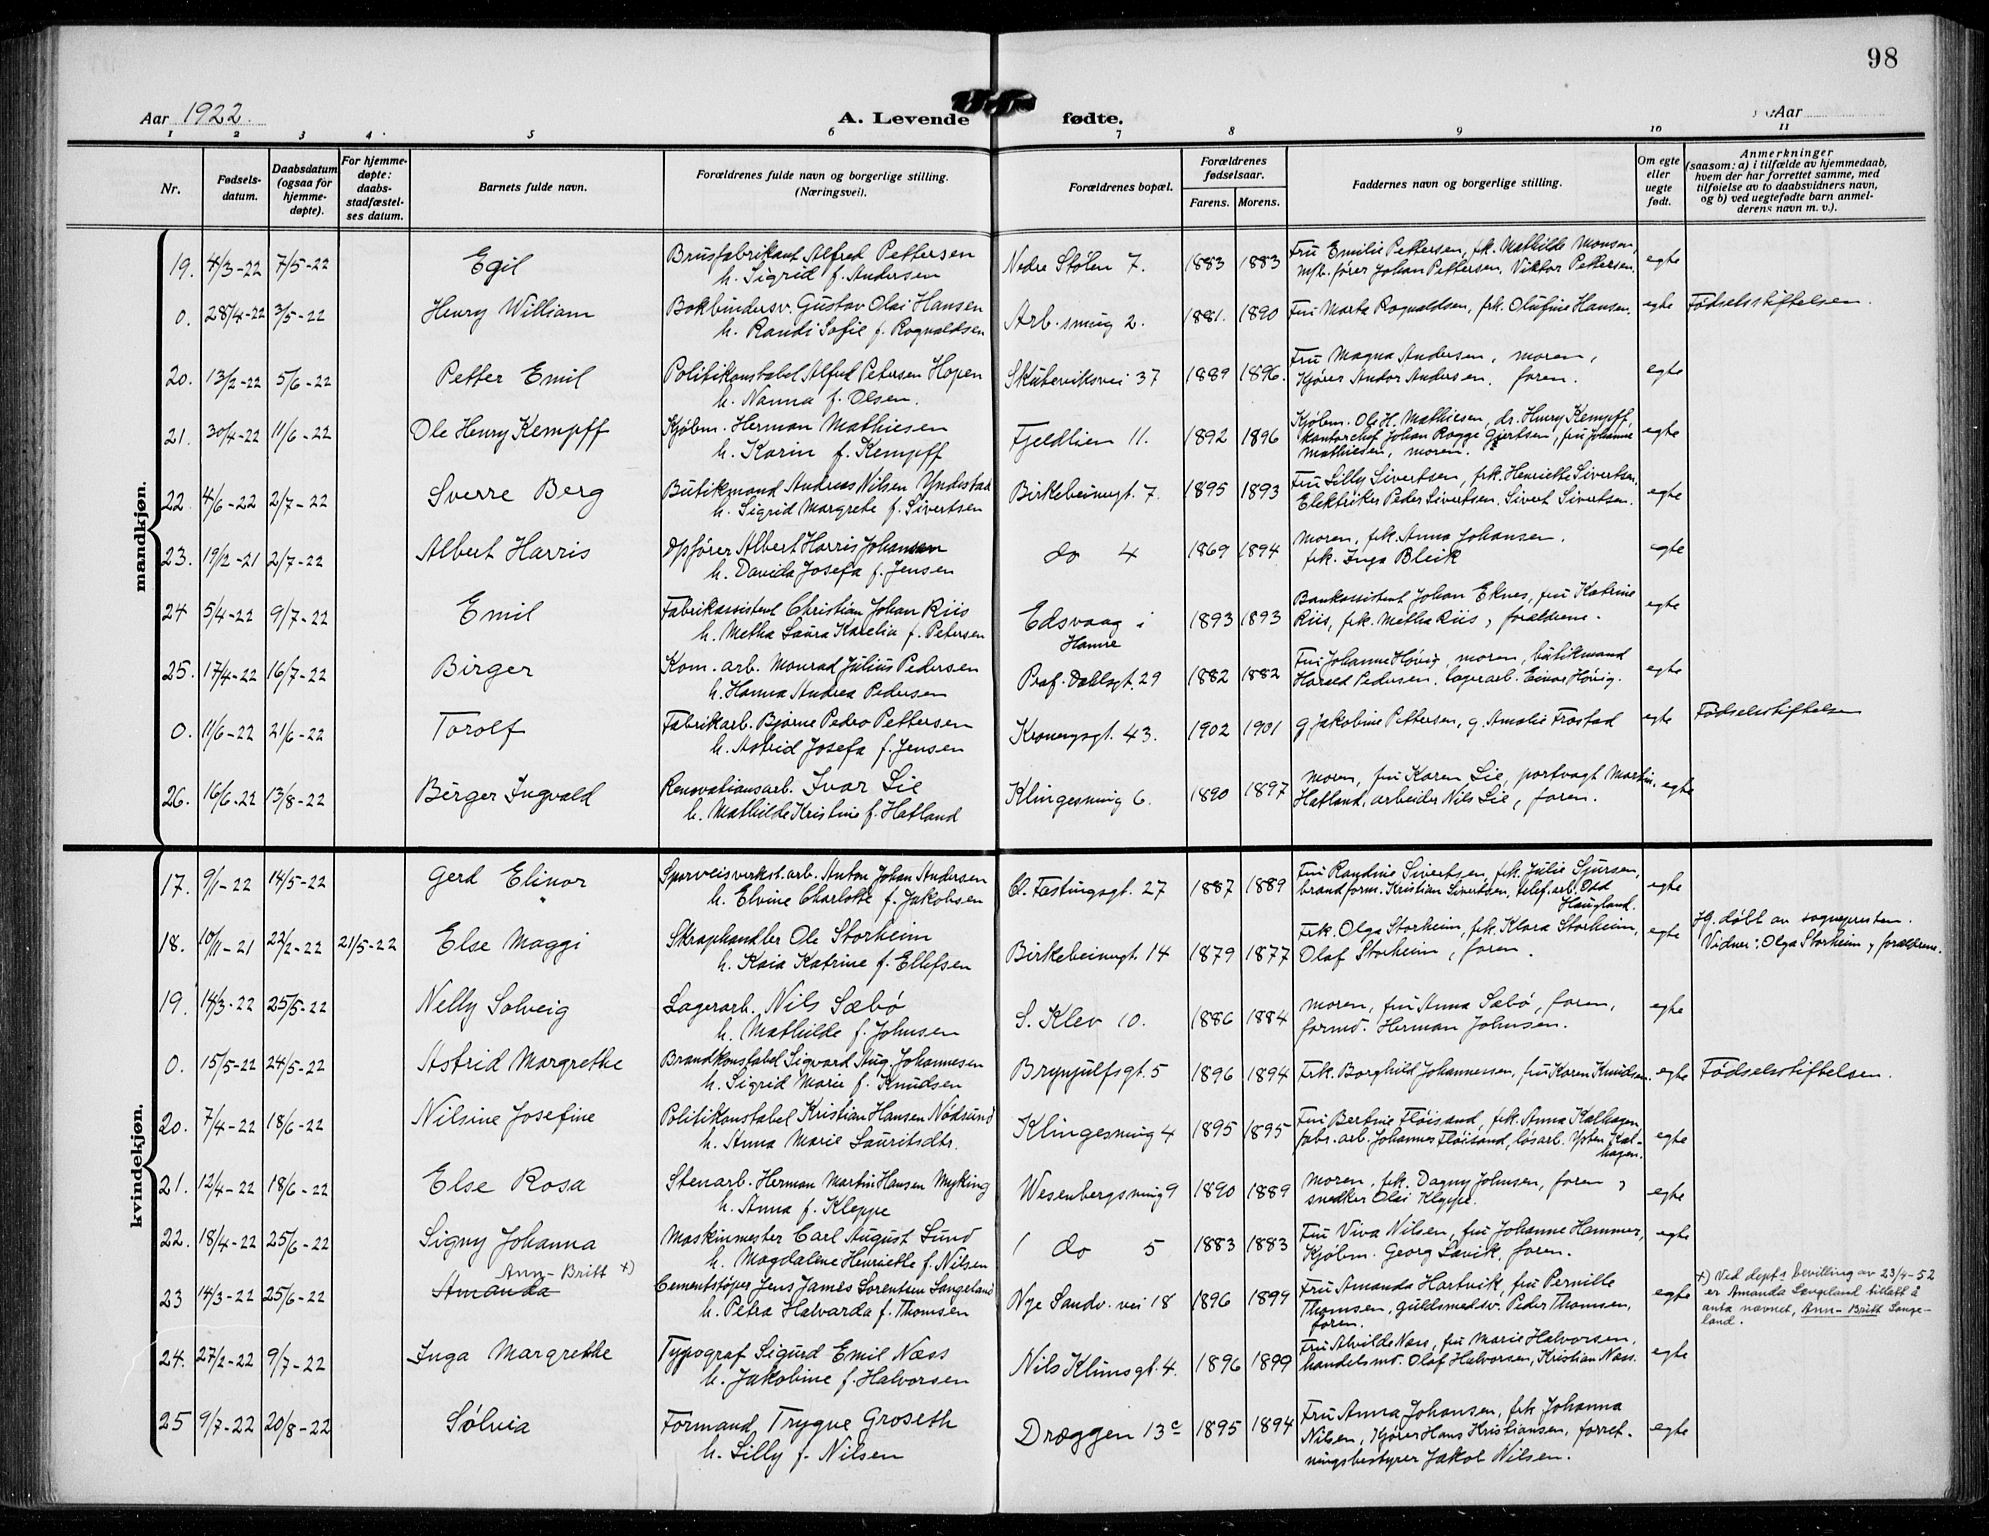 98
Aar 1922.
A. Levende fødte.
Aar
1 2 3 4 5 6 7 8 9 10 11
Nr.
Fødsels-
datum.
Daabsdatum
(ogsaa for
hjemme-
døpte).
For hjemme-
døpte:
daabs-
stadfæstel-
ses datum.
Barnets fulde navn.
Forældrenes fulde navn og borgerlige stilling.
(Næringsvei).
Forældrenes bopæl.
Forældrenes
fødselsaar.
Farens. Morens.
Faddernes navn og borgerlige stilling.
Om egte
eller
uegte
født.
Anmerkninger
(saasom: a) i tilfælde av hjemmedaab,
hvem der har forrettet samme, med
tilføielse av to daabsvidners navn,
og b) ved uegtefødte barn anmel-
derens navn m. v.).
mandkjøn.
19. 4/3-22 7/5-22 Egil Brusfabrikant Alfred Pettersen Nedre Stølen 7. 1883 1883 Fru Emilie Pettersen, frk. Mathilde Monsen, egte
h. Sigrid f. Andersen fører Johan Pettersen, Viktor Pettersen.
0. 28/4-22 3/5-22 Henry William Bokbindersv. Gustav Olai Hansen Arb. smug 2. 1881. 1890 Fru Marta Rognaldsen, frk. Olufine Hansen. egte Fødselsstiftelsen.
h. Randi Sofie f. Rognaldsen
20. 13/2-22 5/6-22 Petter Emil Politikonstabel Alfred Petersen Hopen Skuteviksvei 37 1889 1896. Fru Magna Andersen, moren, egte
h. Nanna f. Olsen. Kjører Andor Andersen. faren.
21. 30/4-22 11/6-22 Ole Henry Kempff Kjøbm. Herman Mathiesen Fjeldlien 11. 1892 1896 Kjøbm. Ole H. Mathiesen, dr. Henry Kempff, egte
h. Karin f. Kempff kontorchef Johan Rogge Gjertsen, fru Johanne
Mathiesen, moren.
22. 4/6-22 2/7-22 Sverre Berg Butikmand Andreas Nilsen Yndestad Birkebeinergt. 7. 1895 1893 Fru Lilly Sivertsen, frk. Henriette Sivertsen, egte
h. Sigrid Margrete f. Sivertsen Elektriker Peder Sivertsen. Sivert Sivertsen.
23. 19/12-21 2/7-22 Albert Harris Opfører Albert Harris Johansen do 4 1869 1894 moren, frk. Anna Johansen. egte
h. Davida Josefa f. Jensen frk. Inga Bleik
24 5/4-22 9/7-22 Emil Fabrikassistent Christian Johan Riis Edsvaag i 1893 1893 Bankassistent Johan Eknes, fru Katrine egte
h. Metha Laura Karelia f. Petersen Hamre Riis, frk. Metha Riis, forældrene.
25. 17/4-22 16/7-22 Birger Kom. arb. Monrad Julius Pedersen Prof. Dahlsgt. 29 1882 1882 Fru Johanne Høvig, moren, butikmand egte
h. Hanna Andrea Pedersen Harald Pedersen. lagerarb. Einar Høvig.
0. 11/6-22 21/6-22 Torolf Fabrikarb. Bjarne Pedro Pettersen Kronengsgt. 43. 1902 1901 g. Jakobine Pettersen, g. Amalie Frostad egte Fødselsstiftelsen
h. Astrid Josefa f. Jensen
26. 16/6-22 13/8-22 Birger Ingvald Renovationsarb. Ivar Lie Klingesmug 6. 1890 1897 moren, fru Karen Lie, portvagt Martin egte
h. Mathilde Kristine f. Hatland Hatland, arbeider Nils Lie, faren.
kvindekjøn.
17. 9/1-22 14/5-22 Gerd Elinor Sporveisverkst. arb. Anton Johan Andersen Cl. Fastingsgt. 27 1887 1889 Fru Randine Sivertsen, frk. Julie Sjursen, egte
h. Elvine Charlotte f. Jakobsen brandform. Kristian Sivertsen, telef. arb. Odd
Haugland.
18. 10/11-21 22/2-22 21/5-22 Else Maggi Skraphandler Ole Storheim Birkebeinergt. 14 1879 1877 Frk. Olga Storheim, frk. Klara Storheim, egte Hj. døbt av sognepresten.
h. Kaia Katrine f. Ellefsen Olaf Storheim, faren. Vidner: Olga Storheim og forældrene.
19. 14/3-22 25/5-22 Nelly Solveig Lagerarb. Nils Sæbø S. Klev 10. 1886 1884 moren, fru Anna Sæbø, faren, egte
h. Mathilde f. Johnsen formd. Herman Johnsen.
0. 15/5-22 24/5-22 Astrid Margrethe Brandkonstabel Sigvard Aug. Johannesen Brynjulfsgt. 5 1896 1894 Frk. Borghild Johannessen, fru Karen Knudsen. egte Fødselsstiftelsen.
h. Sigrid Marie f. Knudsen
20. 7/4-22 18/6-22 Nilsine Josefine Politikonstabel Kristian Hansen Nødsund Klingesmug 4 1895 1895 Fru Bertine Fløisand, frk. Anna Kalhagen egte
h. Anna Marie Lauritsdtr. fabr. arb. Johannes Fløisand, løsarb. Kal-
hagen.
21. 12/4-22 18/6-22 Else Rosa Stenarb. Herman Martin Hansen Myking Wesenbergsmug 9 1890 1889 moren, frk. Dagny Johnsen, faren, egte
h. Anna f. Kleppe snedker Olai Kleppe.
22. 18/4-22 25/6-22 Signy Johanna Maskinmester Carl August Lund do 5 1883 1883 Fru Viva Nilsen, fru Johanne Hammer, egte
h. Magdalene Henriette f. Nilsen Kjøbm. Georg Lavik, faren.
Ann-Britt x)
23 14/3-22 25/6-22 Amanda Cementstøper Jens James Sorentin Langeland Nye Sandv. vei 18 1896 1899 Fru Amanda Hartvik, fru Pernille egte x) Ved dept.s bevilling av 23/4-52
h. Petra Halvarda f. Thomsen Thomsen, guldsmedsv. Peder Thomsen, er Amanda Langeland tillatt å
faren. anta navnet, Ann-Britt Lange-
land.
24. 27/2-22 9/7-22 Inga Margrethe Typograf Sigurd Emil Næss Nils Klimsgt. 4. 1896 1899 Fru Alvilde Næss, fru Marie Halvorsen, egte
h. Jakobine f. Halvorsen handelsmd. Olaf Halvorsen, Kristian Næss.
25 9/7-22 20/8-22 Sølvia Formand Trygve Groseth Dræggen 13c 1895 1894 Fru Anna Johansen, frk. Johanna egte
h. Lilly f. Nilsen Nilsen, kjører Hans Kristiansen, forret-
ningsbestyrer Jakob Nilsen.